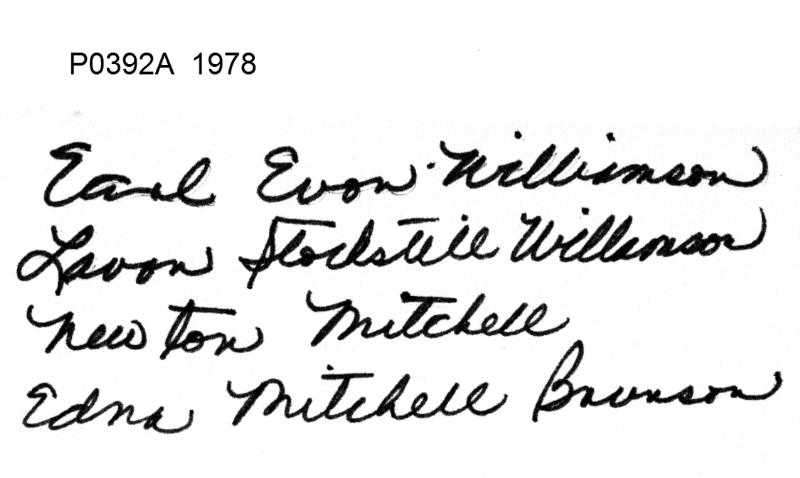 P0392A 1978
Earl Evon Williamson
Lavon Stockstill Williamson
Newton Mitchell
Edna Mitchell Brunson